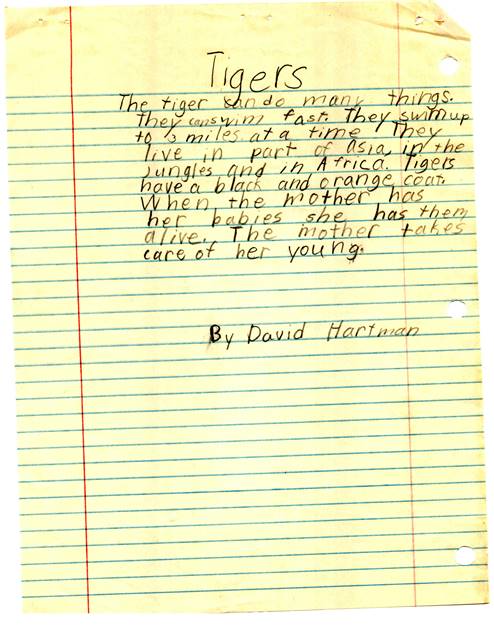 Tigers
The tiger can do many things.
They can swim fast. They swim up
to 3 miles at a time They
live in part of asia, in the
jungles and in Africa. Tigers
have a black and orange coat.
When the mother has
her babies she has them
alive. The mother takes
care of her young.
By David Hartman